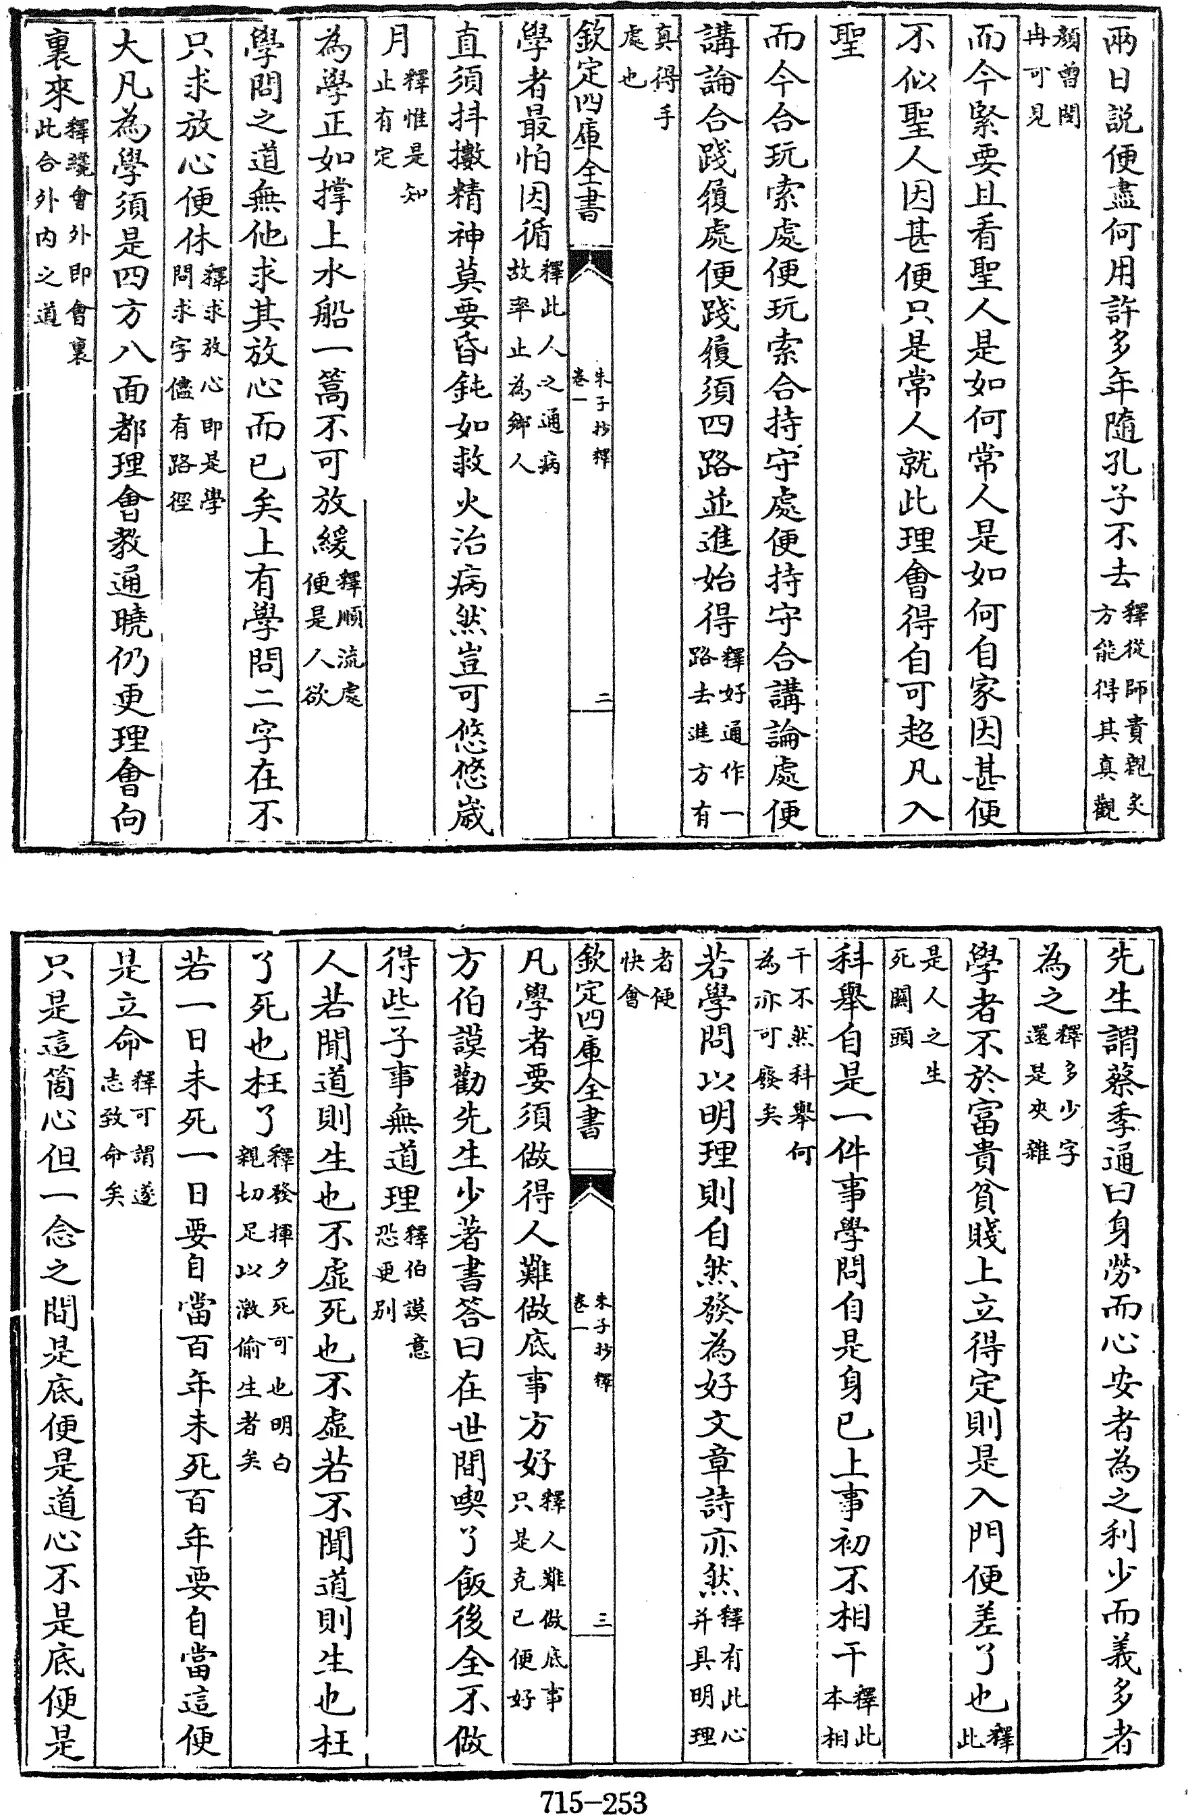 兩日説便盡何用許多年隨孔子不去釋從師貴親炙方能得其真觀
顔曾閔冉可見
而今緊要且看聖人是如何常人是如何自家因甚便
不似聖人因甚便只是常人就此理會得自可超凡入
聖
而今合玩索處便玩索合持守處便持守合講論處便
講論合踐履處便踐履須四路並進始得釋好通作一路去進方有
真得手處也
欽定四庫全書 朱子抄釋 卷一 二
學者最怕因循釋此人之通病故率止為鄉人
直須抖擻精神莫要昏鈍如救火治病然豈可悠悠歲
月釋惟是知止有定
為學正如撑上水船一篙不可放緩釋順流處便是人欲
學問之道無他求其放心而已矣上有學問二字在不
只求放心便休釋求放心即是學問求字儘有路徑
大凡為學須是四方八面都理會教通曉仍更理會向
裏來釋纔會外即會裏此合外内之道
先生謂蔡季通曰身勞而心安者為之利少而義多者
為之釋多少字還是夾雜
學者不於富貴貧賤上立得定則是入門便差了也釋此
是人之生死關頭
科舉自是一件事學問自是身已上事初不相干釋此本相
干不然科舉何為亦可廢矣
若學問以明理則自然發為好文章詩亦然釋有此心并具明理
者便快會
欽定四庫全書 朱子抄釋 卷一 三
凡學者要須做得人難做底事方好釋人難做底事只是克已便好
方伯謨勸先生少著書答曰在世間喫了飯後全不做
得些子事無道理釋伯謨意恐更别
人若聞道則生也不虛死也不虛若不聞道則生也枉
了死也枉了釋發揮夕死可也明白親切足以激偷生者矣
若一日未死一日要自當百年未死百年要自當這便
是立命釋可謂遂志致命矣
只是這箇心但一念之間是底便是道心不是底便是
715-253